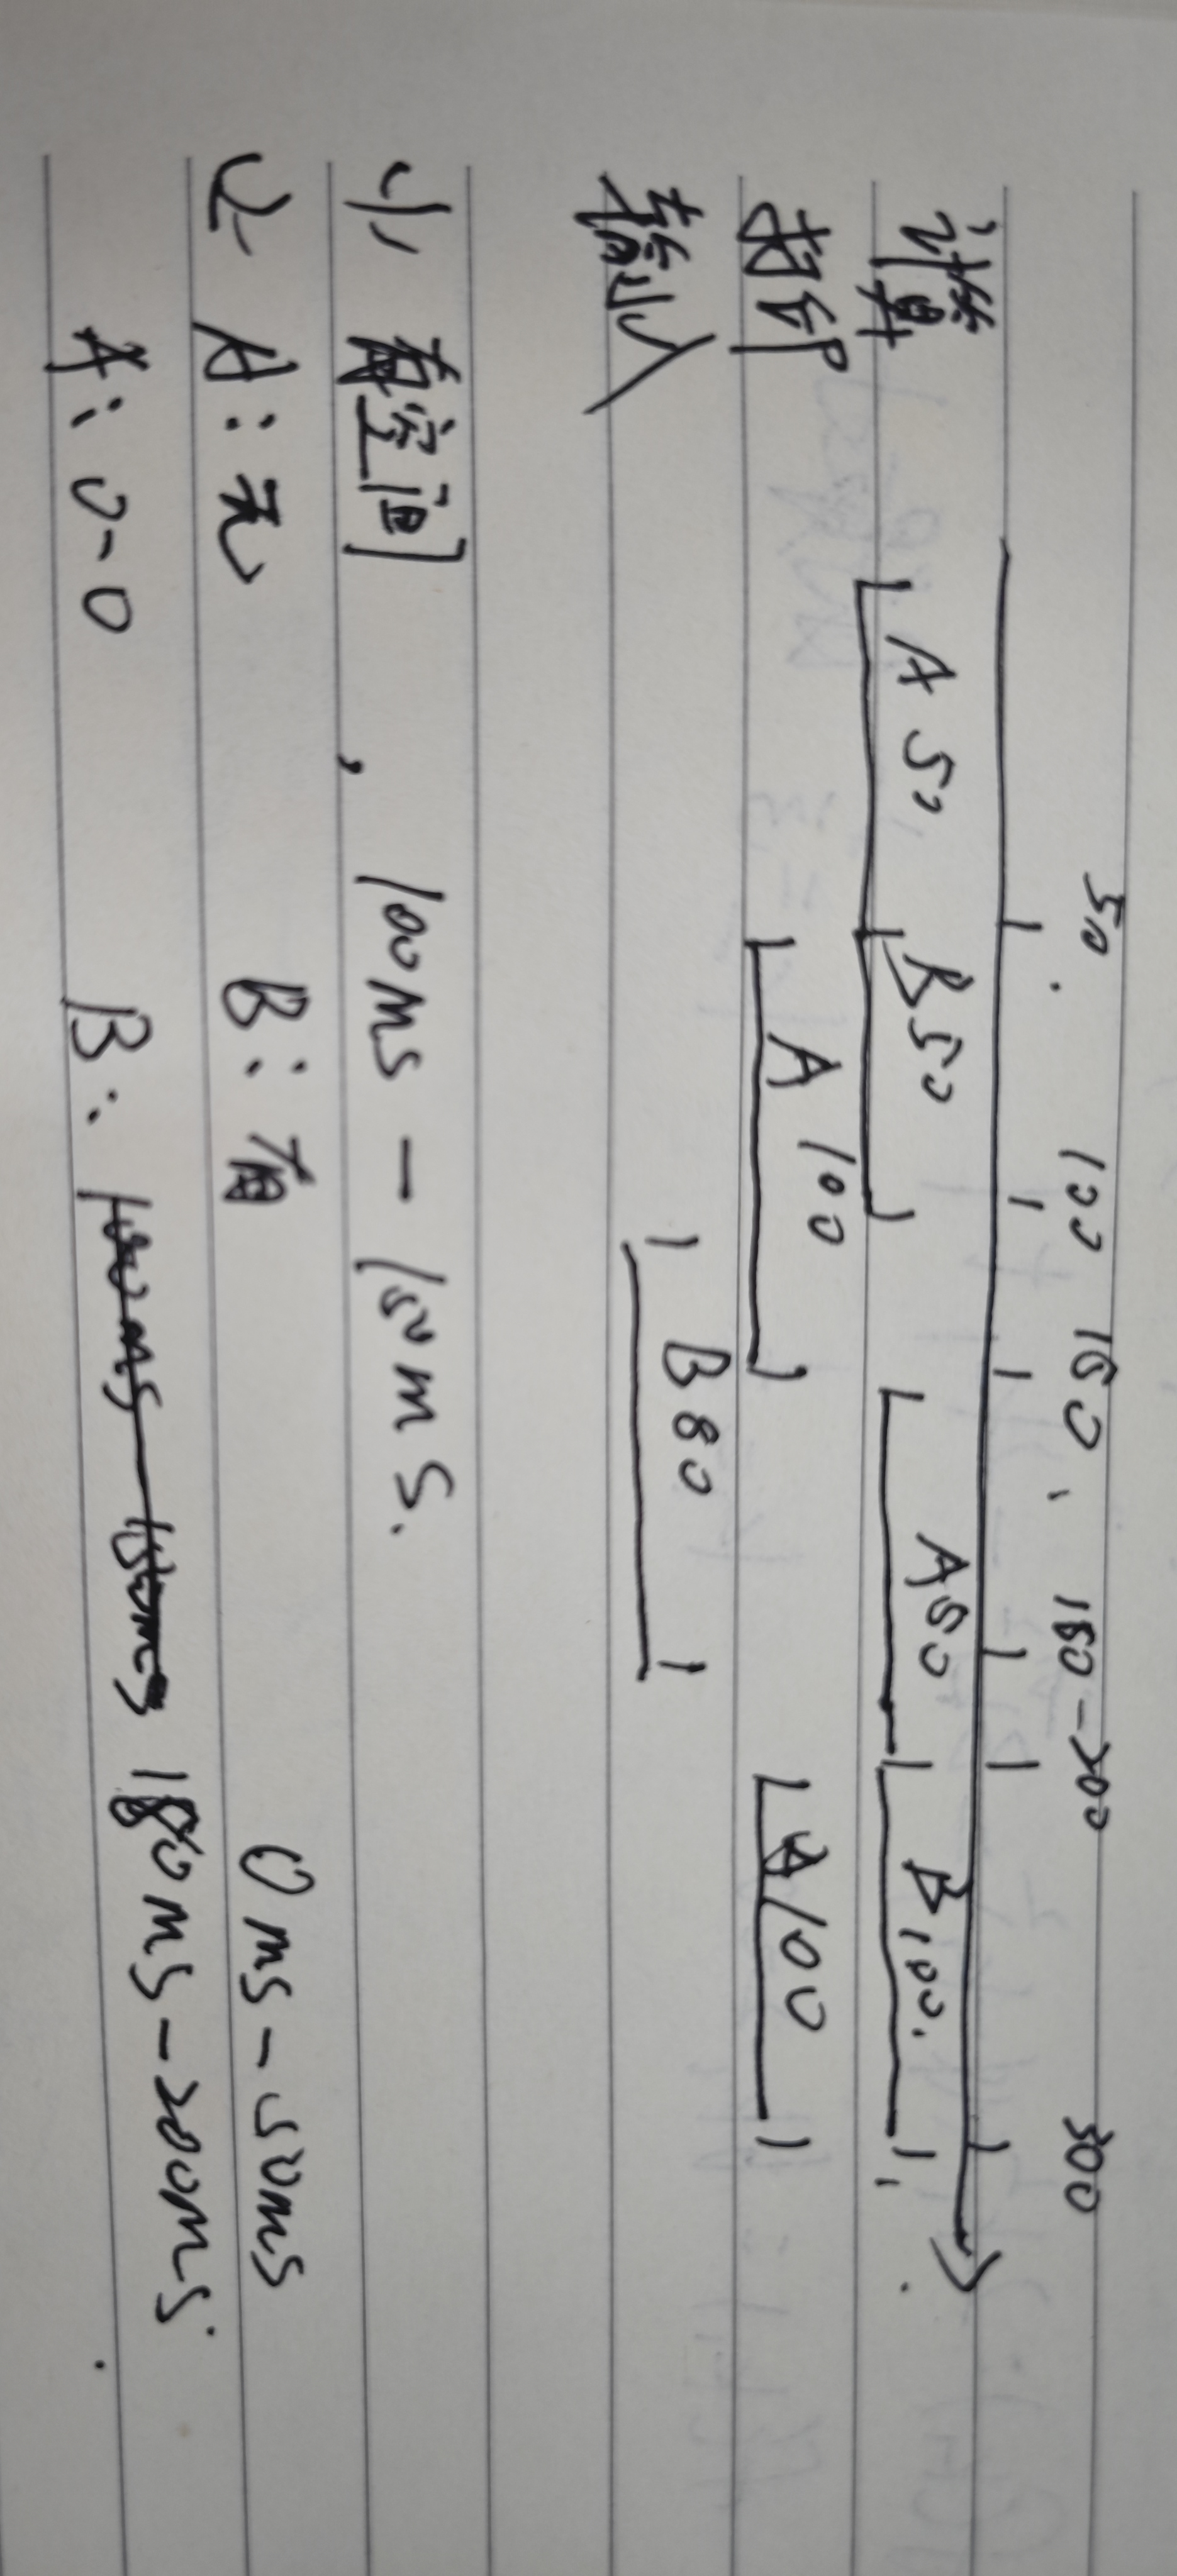 50 100 150 180-200 300
计算 A 50 B 50 A50 B100
打印 A 100 A100
输入 B 80
1、有空闲,100ms-150ms.
2、A:无 B:有 0ms-50ms
A:0-0 B: 180ms-200ms.